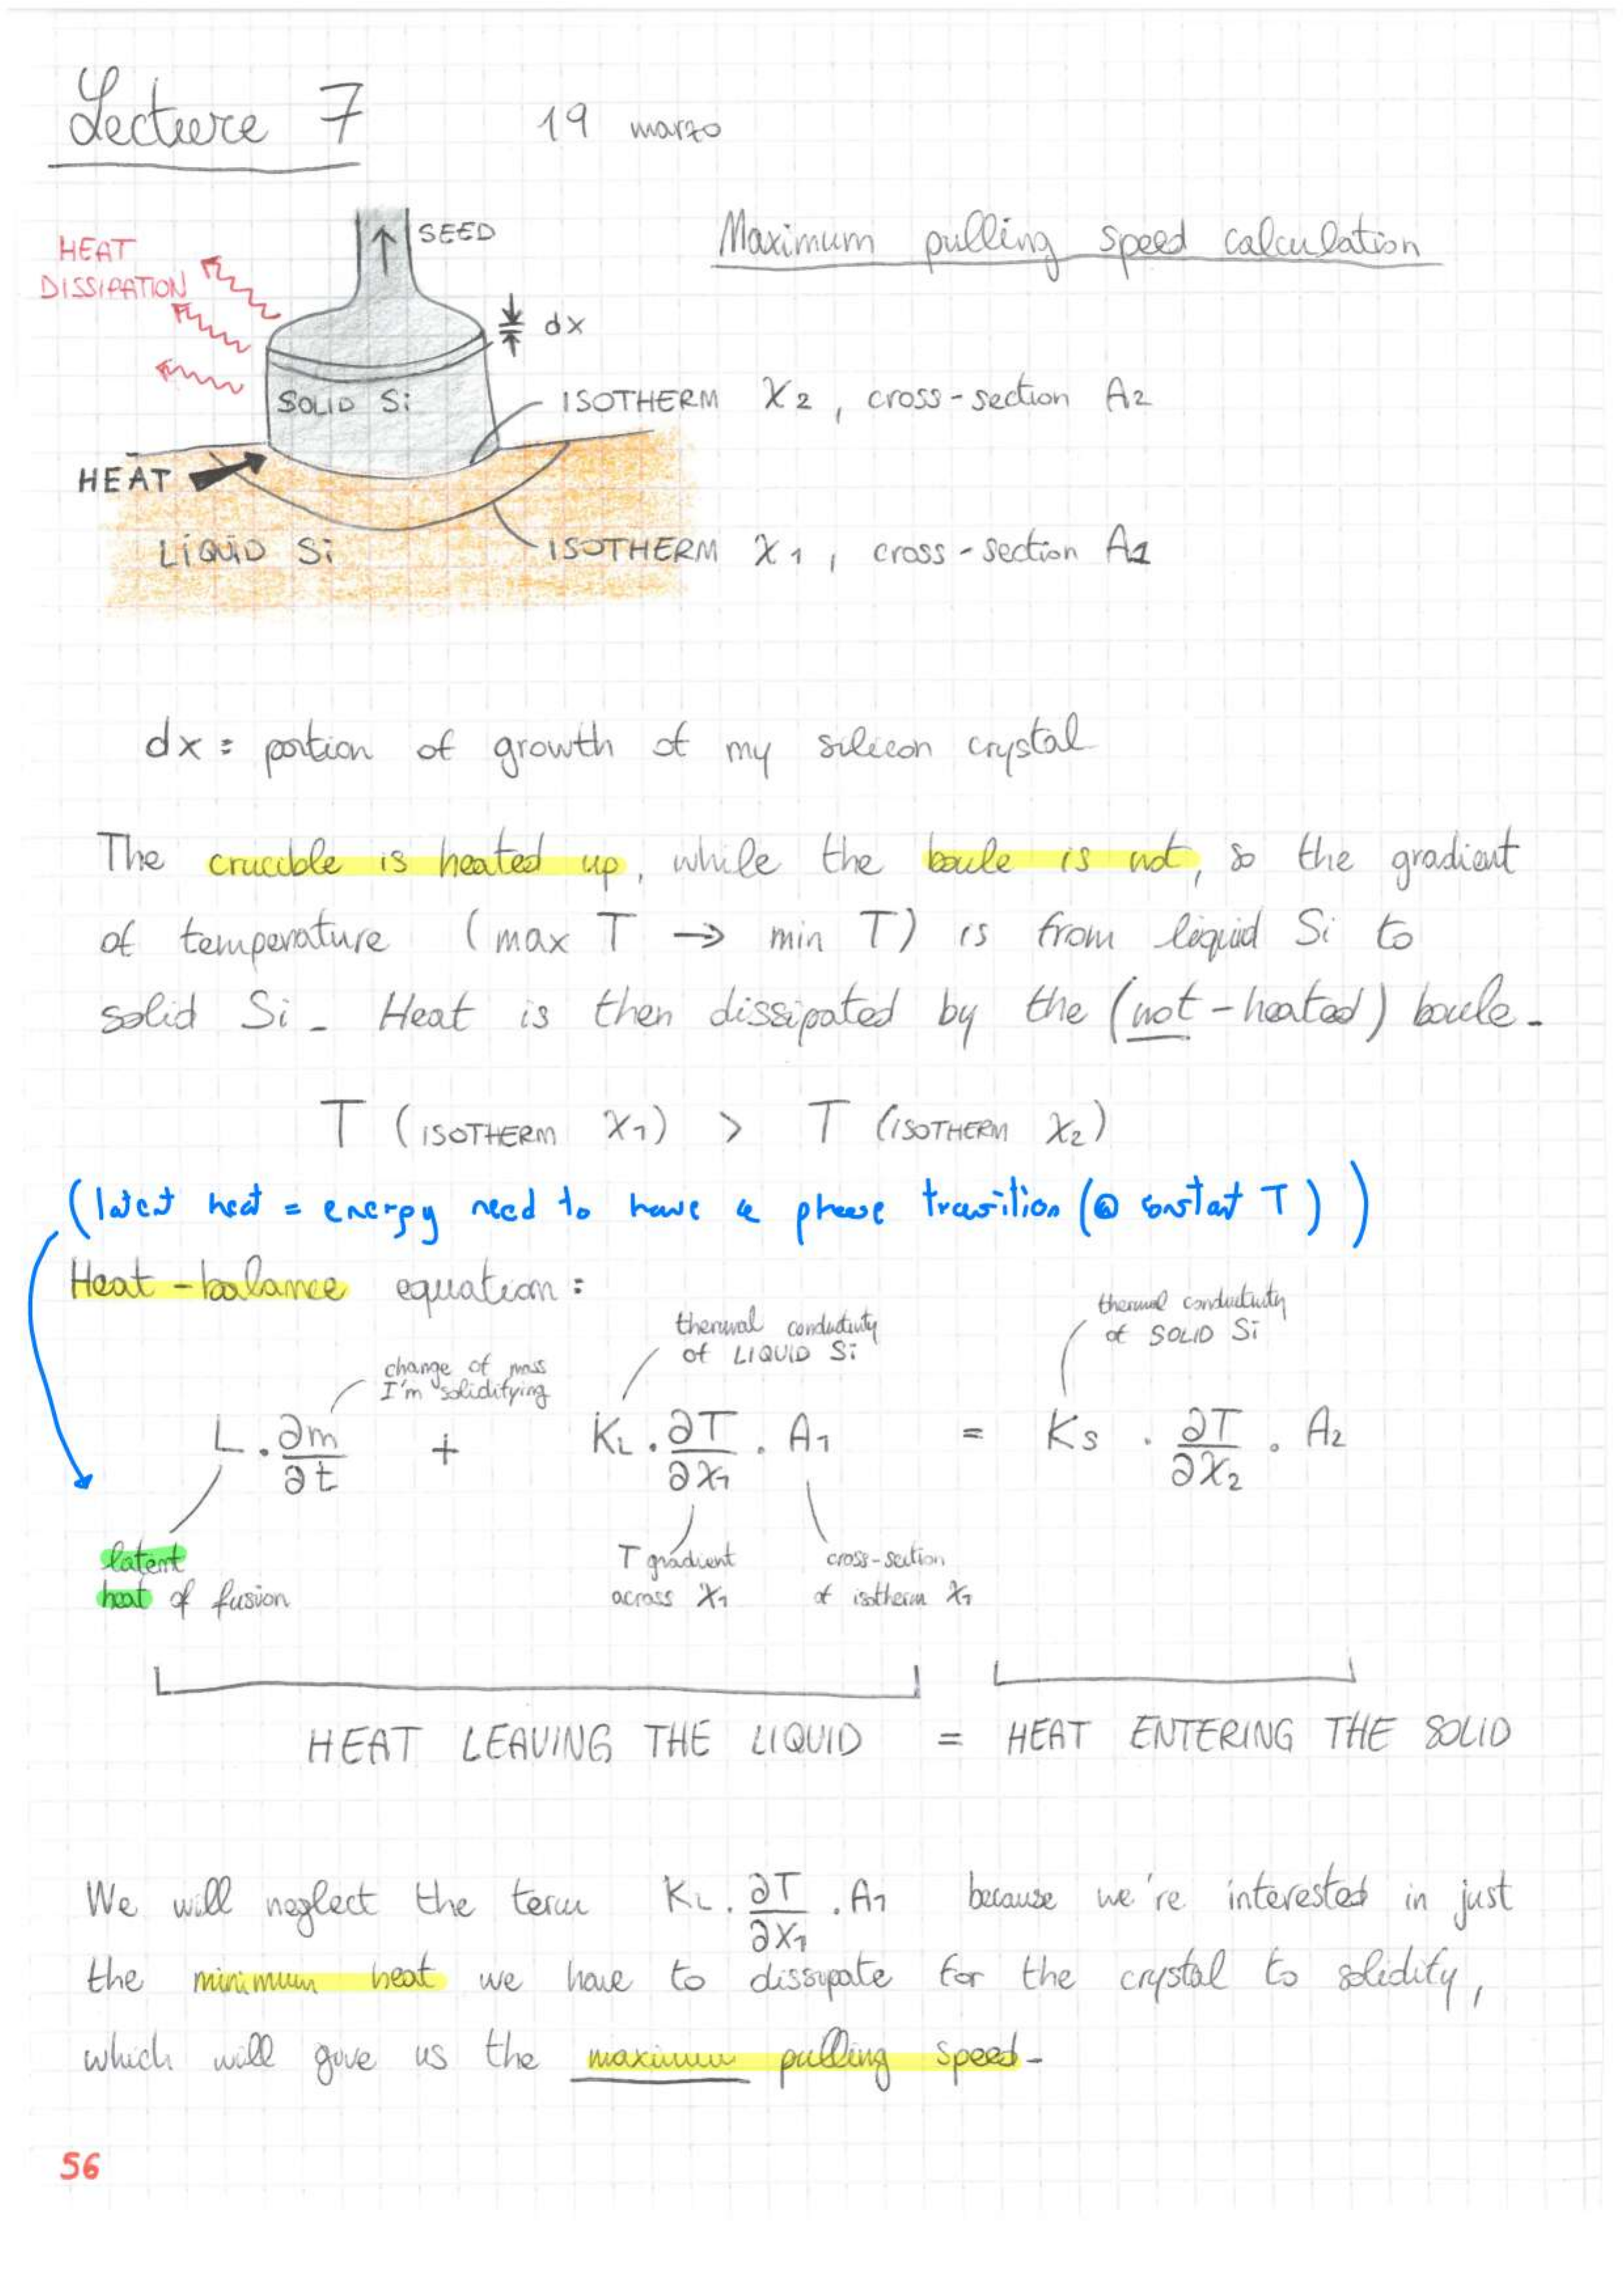 Lecture 7 19 marzo
Maximum pulling speed calculation
HEAT
DISSIPATION
SEED
dx
SOLID Si
ISOTHERM X2, cross-section A2
HEAT
LIQUID Si
ISOTHERM X1, cross-section A1
dx = portion of growth of my silicon crystal
The crucible is heated up, while the boule is not, so the gradient
of temperature (max T → min T) is from liquid Si to
solid Si. Heat is then dissipated by the (not-heated) boule.
T (ISOTHERM X1) > T (ISOTHERM X2)
(latent heat = energy need to have a phase transition (@ constant T))
Heat-balance equation:
change of mass
I'm solidifying
thermal conductivity
of LIQUID Si
thermal conductivity
of SOLID Si
L · ∂m/∂t + KL · ∂T/∂X1 · A1 = KS · ∂T/∂X2 · A2
latent
heat of fusion
T gradient
across X1
cross-section
of isotherm X1
HEAT LEAVING THE LIQUID = HEAT ENTERING THE SOLID
We will neglect the term KL · ∂T/∂X1 · A1 because we're interested in just
the minimum heat we have to dissipate for the crystal to solidify,
which will give us the maximum pulling speed.
56